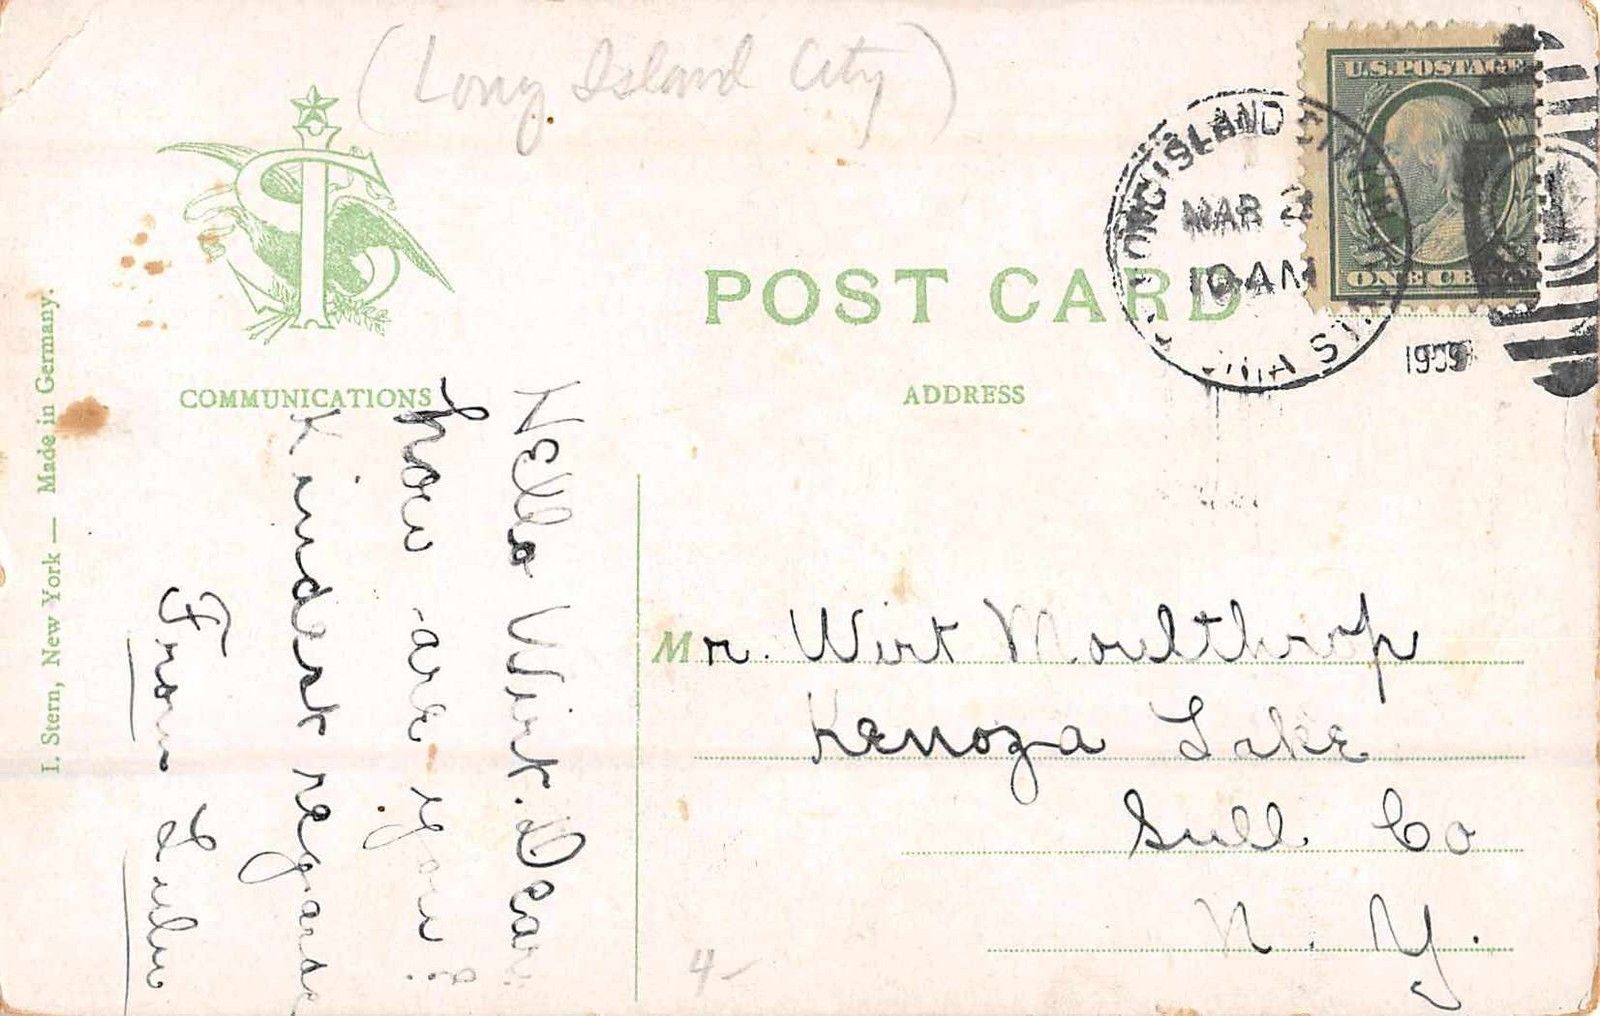 (Long Island City)
U.S. POSTAGE
ONE CENT
LONG ISLAND CITY
MAR 2
10 AM
STA
1909
POST CARD
COMMUNICATIONS
ADDRESS
I. Stern, New York — Made in Germany.
Hello Wirt. Dear
how are you?
Kindest regards
From Lulu
Mr. Wirt Moulthrop
Kenoza Lake
Sull Co
N. Y.
4-